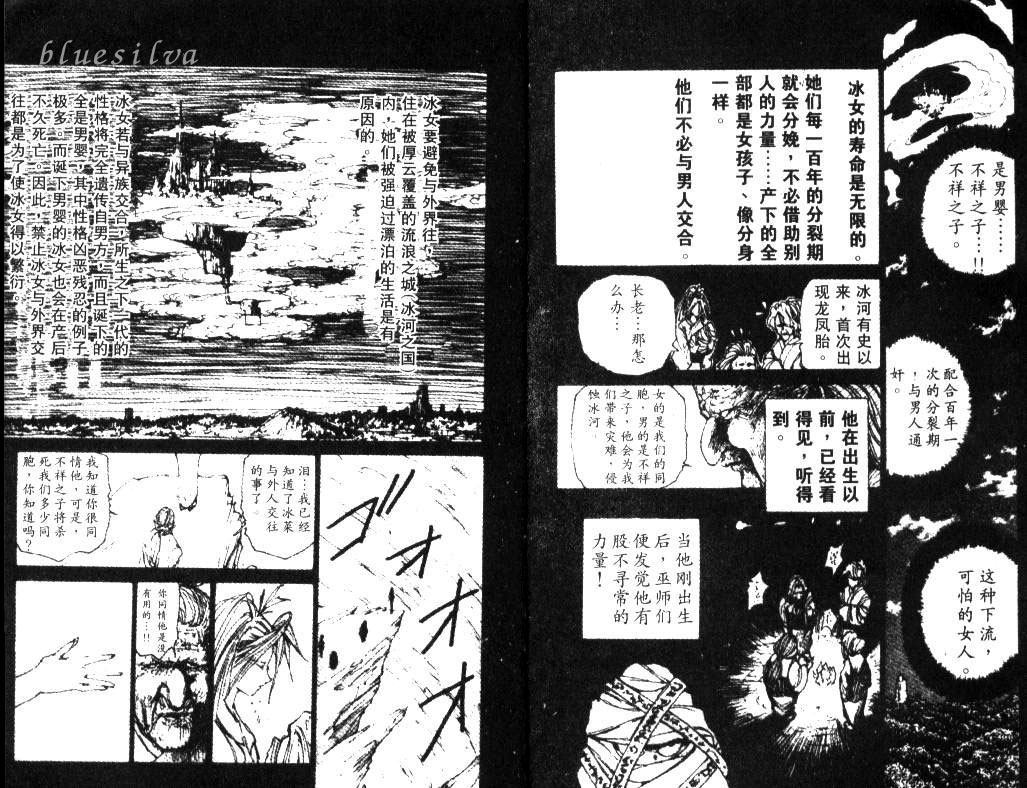 是男婴……
不祥之子…!!
不祥之子。
配合百年一
次的分裂期
，与男人通
奸。
这种下流，
可怕的女人。
冰女的寿命是无限的。
她们每一百年的分裂期
就会分娩，不必借助别
人的力量……产下的全
部都是女孩子、像分身
一样。
他们不必与男人交合。
冰河有史以
来，首次出
现龙凤胎。
长老…那怎
么办…
他在出生以
前，已经看
得见，听得
到。
女的是我们的同
胞，男的是不祥
之子，他会为我
们带来灾难，侵
蚀冰河。
当他刚出生
后，巫师们
便发觉他有
股不寻常的
力量！
bluesilva
冰女要避免与外界往，
住在被厚云覆盖的流浪之城（冰河之国）
内，她们被强迫过漂泊的生活是有
原因的。
冰女若与异族交合，所生之下一代的
性格将完全遗传自男方，而且诞下的
全是男婴，其中性格凶恶残忍的例子
极多。而诞下男婴的冰女也会在产后
不久死亡。因此，禁止冰女与外界交
往都是为了使冰女得以繁衍。
泪…我已经
知道了冰菜
与外人交往
的事了。
我知道你很同
情他，可是，
不祥之子将杀
死我们多少同
胞，你知道吗？
你同情他是没
有用的…!!
オオオオ